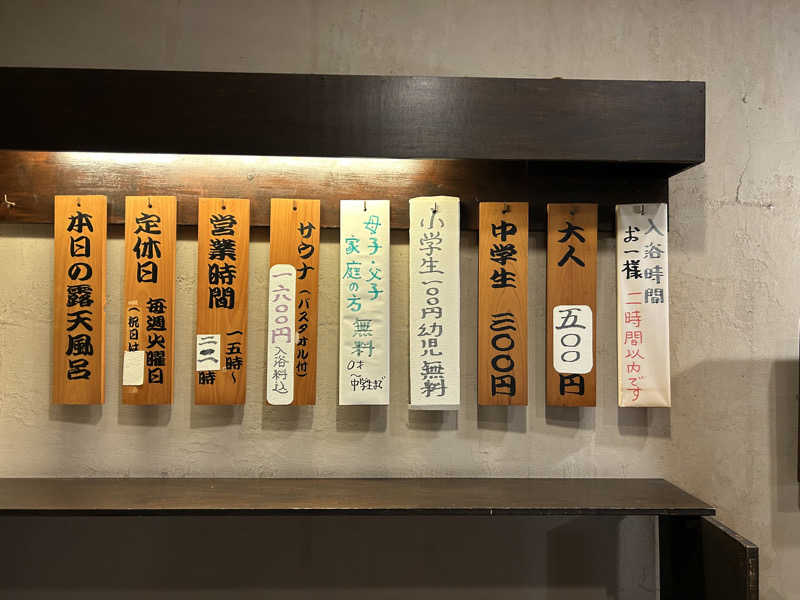 入浴時間
お一様
二時間以内です
大人
五〇〇円
中学生 三〇〇円
小学生一〇〇円幼児無料
母子・父子
家庭の方 無料
0才
〜中学生まで
サウナ(バスタオル付)
一六〇〇円
入浴料込
営業時間
一五時〜
二一時
定休日 毎週火曜日
(祝日は
本日の露天風呂